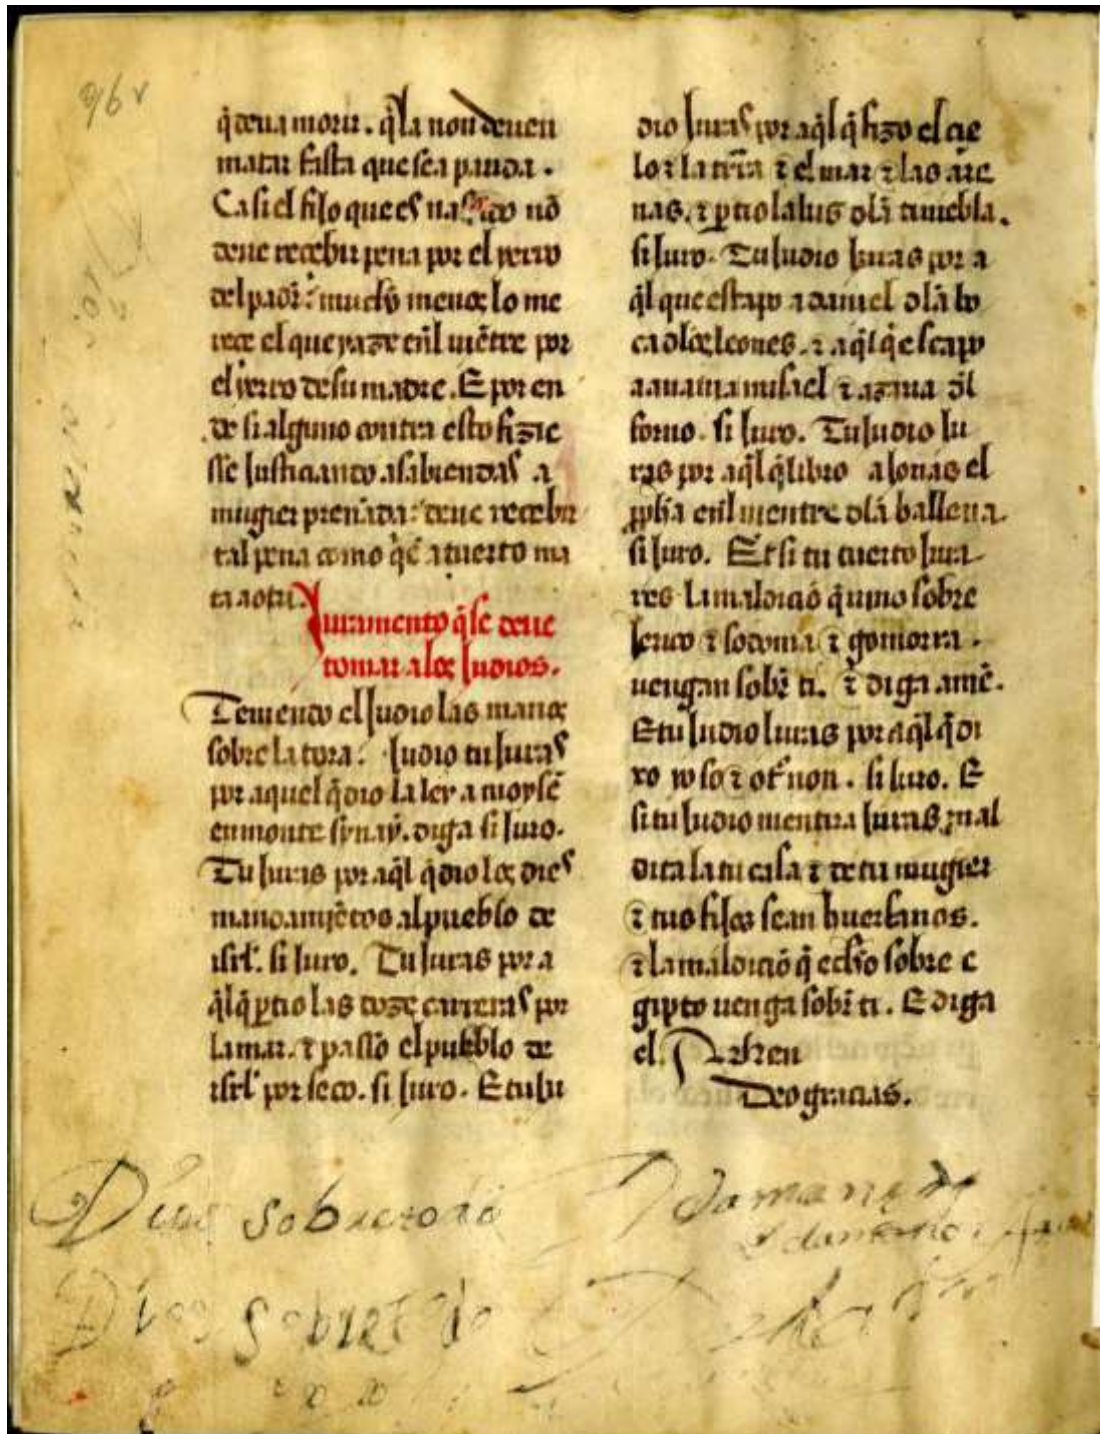 96v
q̃ deua morir. q̃ la non deuen
matar fasta que sea parida.
Ca si el fijo que es nasçido nõ
deue reçebir pena por el yerro
del padr̃: mucho menos lo me
reçe el que yaze enl uiẽtre por
el yerro de su madre. E por en
de si alguno contra esto fizie
sse iustiçiando a sabiendas a
mugier prenada: deue reçebir
tal pena como q̃ ẽ a tuerto ma
ta a otri.
Juramento q̃ se deue
tomar a los Judios.
Teniendo el Judio las manos
sobre la tora: Judio tu Juras
por aquel q̃ dio la ley a moysẽ
en monte synay. diga si Juro.
Tu Juras por aq̃l q̃ dio los dies
mandamiẽtos al pueblo de
isrl̃. si Juro. Tu Juras por a
q̃l q̃ ꝑtio las doze carreras por
la mar. ⁊ passo el pueblo de
isrl̃ por seco. si Juro. E tu Ju
dio Juras por aq̃l q̃ fizo el çie
lo ⁊ la tr̃ra ⁊ el mar ⁊ las are
nas. ⁊ ꝑtio la lus dl̃a tiniebla.
si Juro. Tu Judio Juras por a
q̃l que estapo a daniel dl̃a bo
ca dlos leones. ⁊ aq̃l q̃ escapo
a anania misael ⁊ azaria dl̃
forno. si Juro. Tu Judio Ju
ras por aq̃l q̃ libro a Jonas el
ꝓph̃a enl uientre dl̃a ballena.
si Juro. Et si tu tuerto Jura
res la maldiçiõ q̃ uino sobre
Jerico ⁊ sodoma ⁊ gomorra.
uengan sobr̃ ti. ⁊ diga amẽ.
E tu Judio Juras por aq̃l q̃ di
xo yo so ⁊ otr̃ non. si Juro. E
si tu Judio mentira Juras, mal
dita la tu casa ⁊ de tu mugier
⁊ tus fijos sean huerfanos.
⁊ la maldiçiõ q̃ echo sobre e
gipto uenga sobr̃ ti. E diga
el. Amen
Deo graçias.
Dios sobretodo
Dios sobretodo